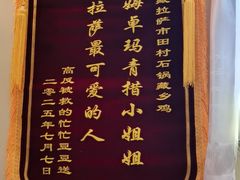 藏拉萨市田村石锅藏乡鸡
姆卓玛青措小姐姐
拉萨最可爱的人
高反被救的忙忙豆豆送
二零二五年七月七日